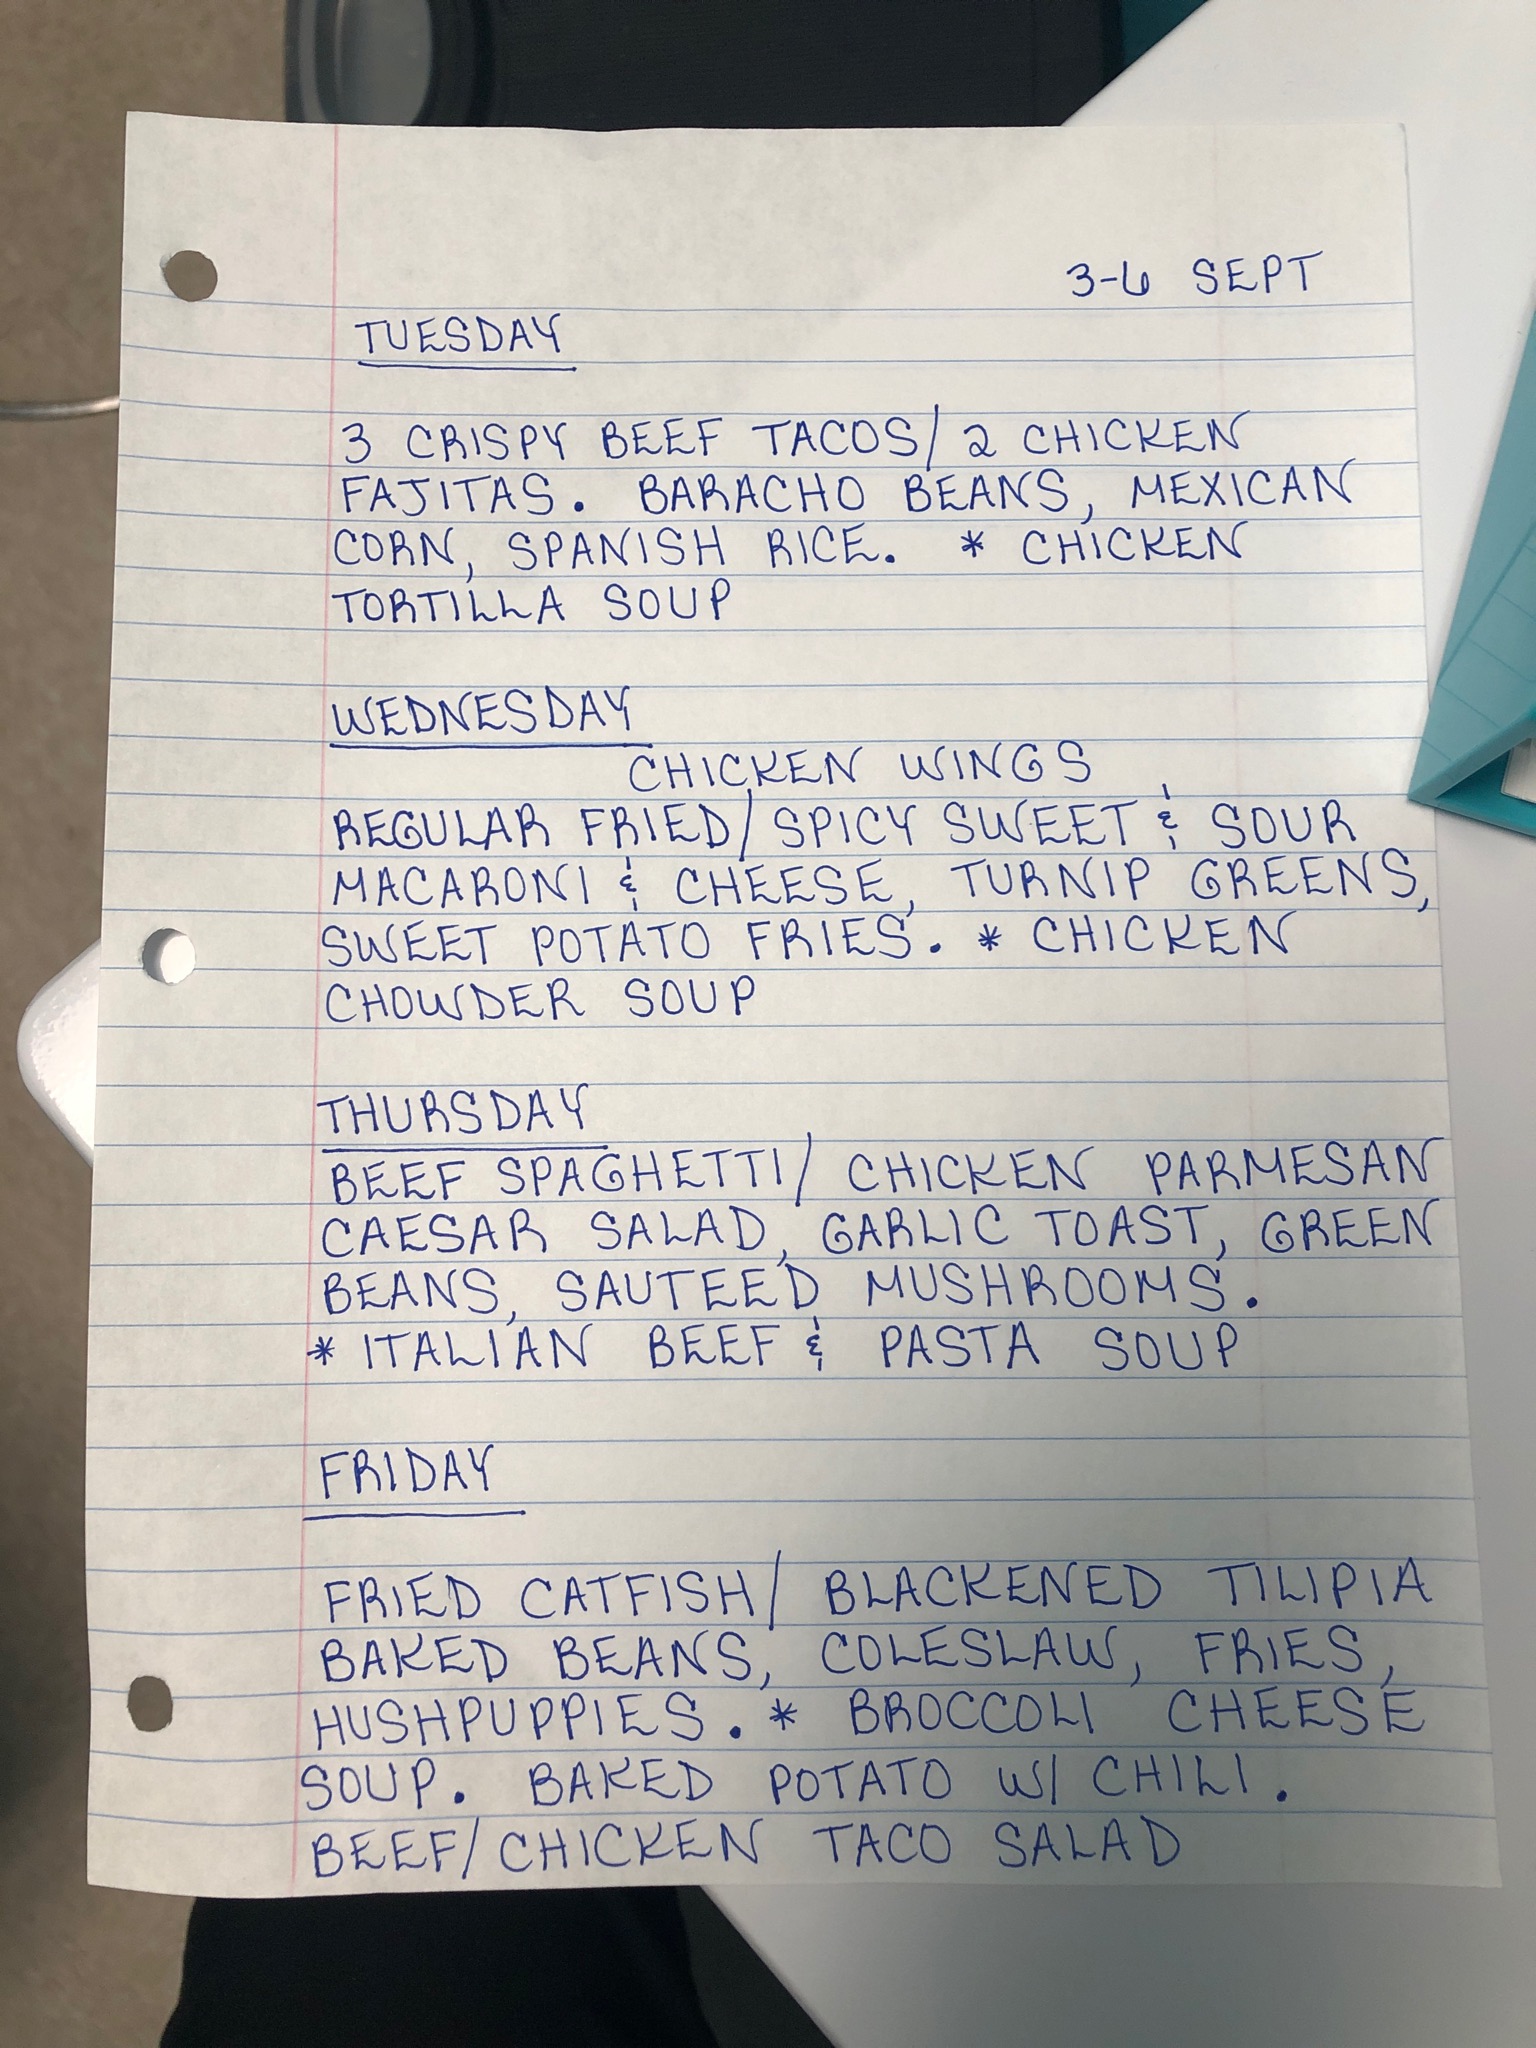 3-6 SEPT
TUESDAY
3 CRISPY BEEF TACOS/2 CHICKEN
FAJITAS. BARACHO BEANS, MEXICAN
CORN, SPANISH RICE. * CHICKEN
TORTILLA SOUP
WEDNESDAY
CHICKEN WINGS
REGULAR FRIED/SPICY SWEET & SOUR
MACARONI & CHEESE, TURNIP GREENS,
SWEET POTATO FRIES. * CHICKEN
CHOWDER SOUP
THURSDAY
BEEF SPAGHETTI/ CHICKEN PARMESAN
CAESAR SALAD, GARLIC TOAST, GREEN
BEANS, SAUTEED MUSHROOMS.
* ITALIAN BEEF & PASTA SOUP
FRIDAY
FRIED CATFISH/ BLACKENED TILIPIA
BAKED BEANS, COLESLAW, FRIES,
HUSHPUPPIES. * BROCCOLI CHEESE
SOUP. BAKED POTATO W/ CHILI.
BEEF/CHICKEN TACO SALAD